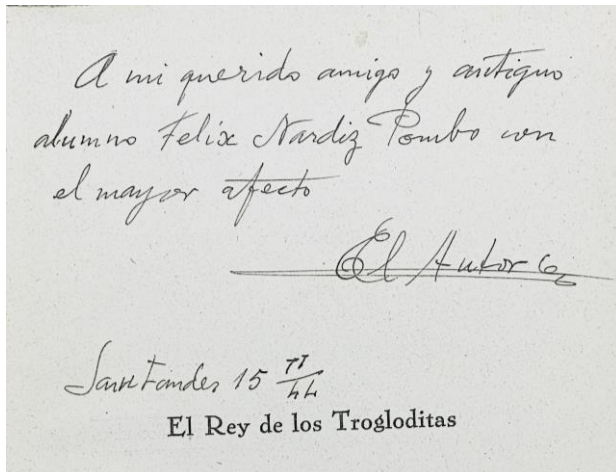 A mi querido amigo y antiguo
alumno Felix Nardiz Pombo con
el mayor afecto
El Autor
Santander 15
El Rey de los Trogloditas